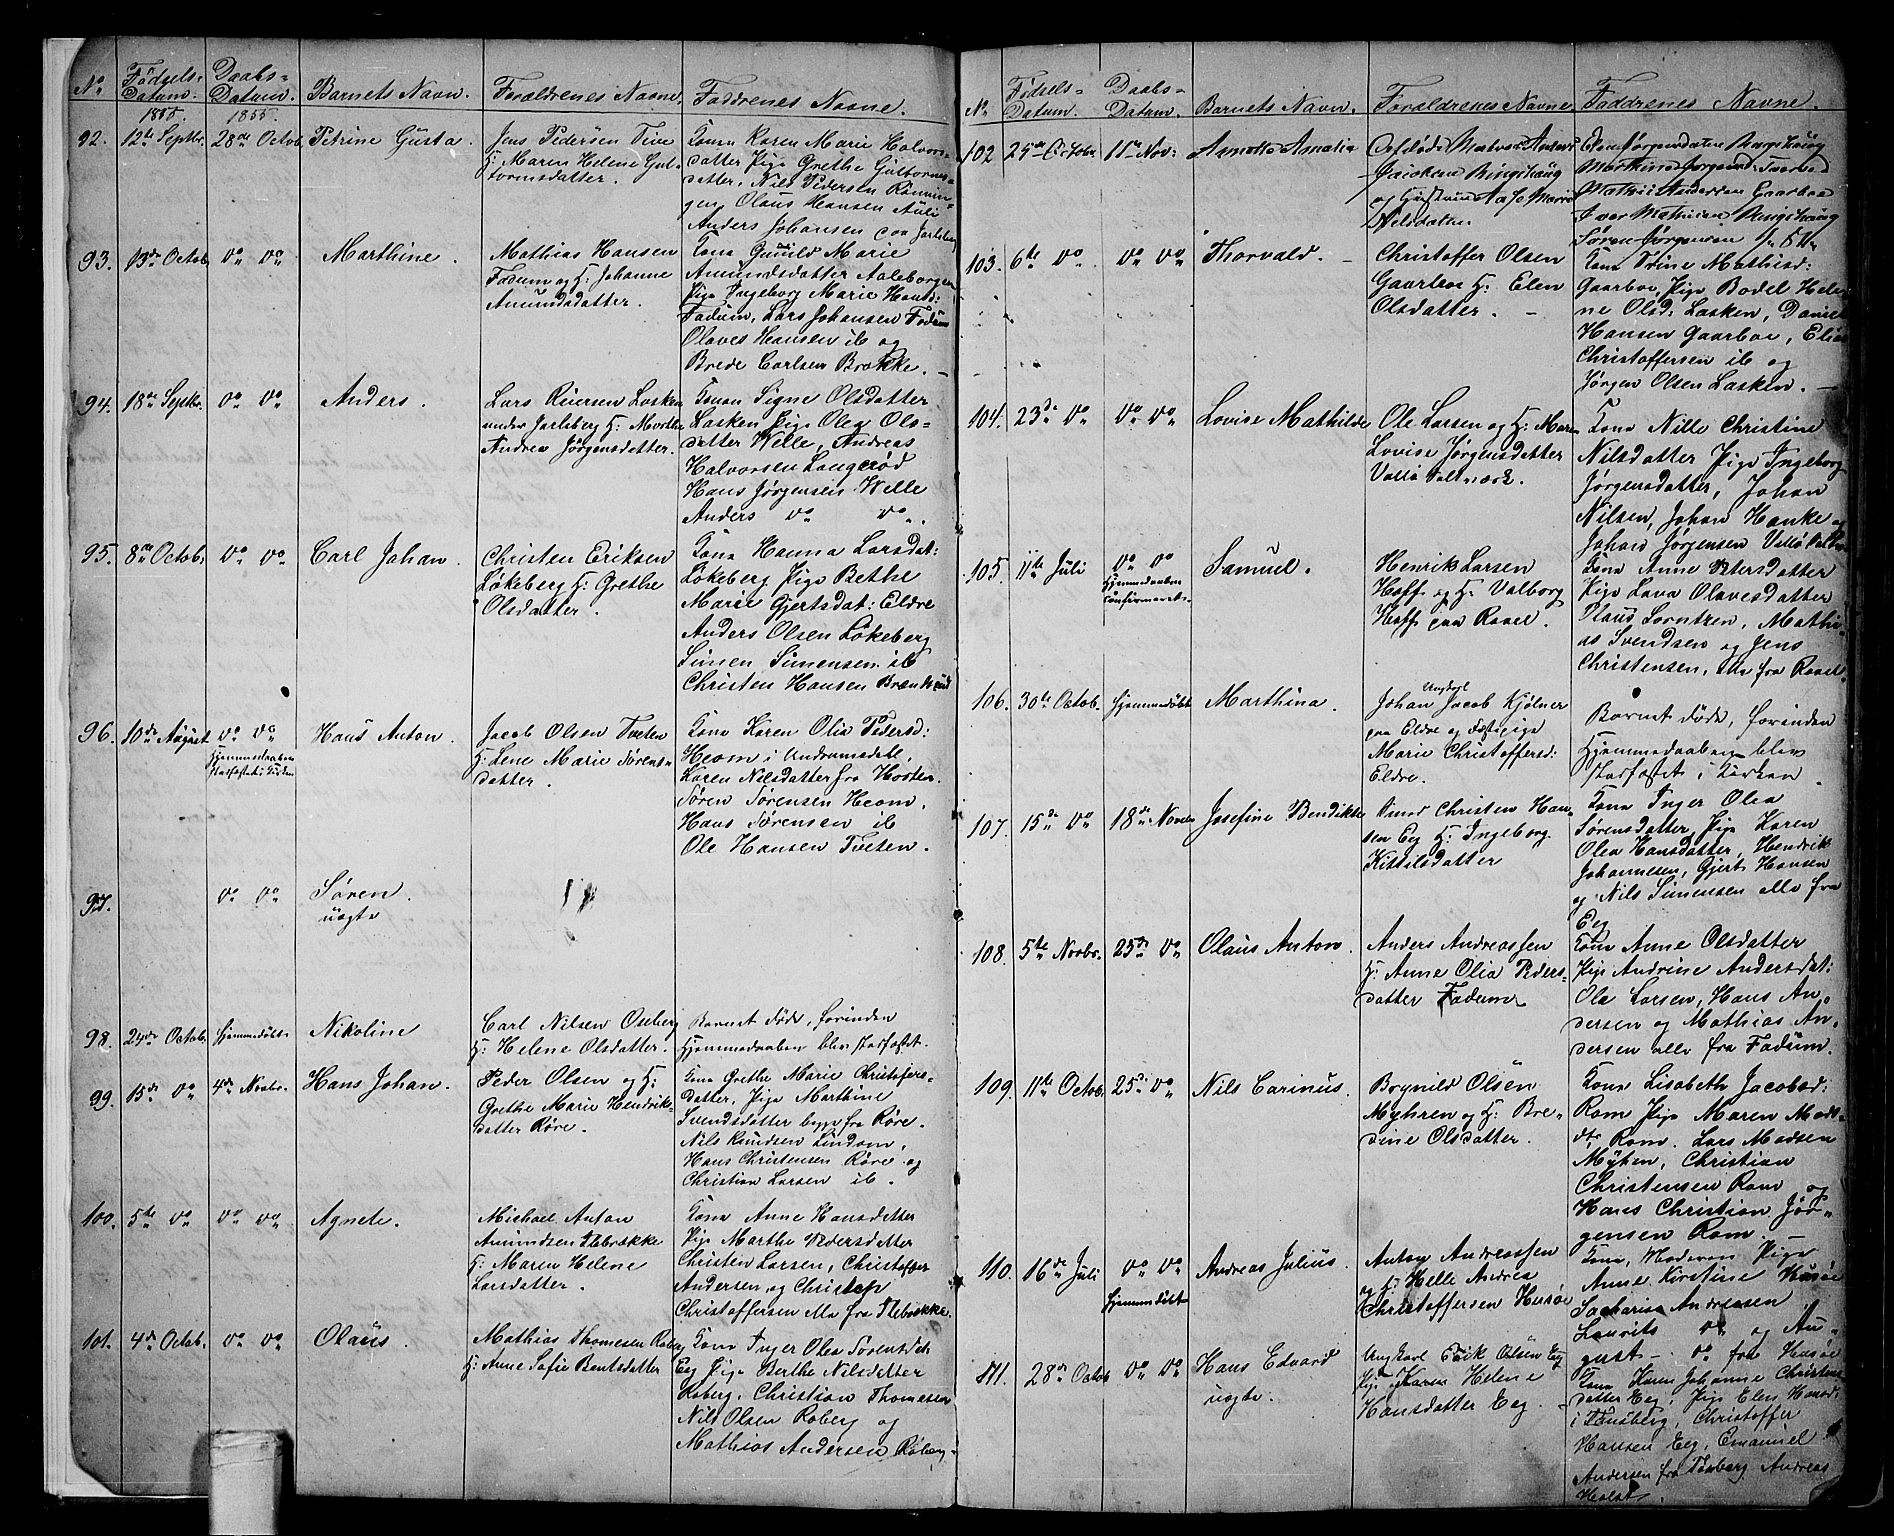 No Fødsels-Datum. Daabs-Datum. Barnets Navn. Forældrenes Navne, Faddrenes Navne.
1855. 1855.
92. 12te Septbr. 28de Octob. Petrine Gusta. Jens Pedersen
H: Maren Helene Gul-
tormsdatter.
Kona Karen Marie Halvors-
datter Pige Grethe Gulbrans-
datter, Nils Pedersen
Olaus Hansen Auli
Anders Johansen paa Jarlsberg
93. 13de Octob. do do Marthine. Mathias Hansen
Fadum og H: Johanne
Amundsdatter.
Kona Gunild Marie
Amundsdatter
Pige Ingeborg Marie Hansd:
Fadum, Lars Johansen Fadum
Olaves Hansen ib og
Brede Carlsen Brække.
94. 18de Septbr. do do Anders. Lars Iversen Lasken
under Jarlsberg H: Marthe
Andrea Jørgensdatter.
Konen Signe Olsdatter
Lasken Pige Olea Ols-
datter Welle, Andreas
Halvorsen Langerød
Hans Jørgensen Welle
Anders do do.
95. 8de Octob. do do Carl Johan. Christen Eriksen
Løkeberg H: Grethe
Olsdatter.
Kona Hanna Larsdat:
Løkeberg Pige Bethe
Marie Gjertsdat: Eldre
Anders Olsen Løkeberg
Simen Simensen ib
Christen Hansen
96. 10de August do do Hans Anton. Jacob Olsen Tveten
Hjemmedaaben
stadfæstet i Kirken
H: Lene Marie Sørens-
datter.
Kona Karen Olia Pedersd:
Heom i Undrumsdal,
Karen Nilsdatter fra Horten.
Søren Sørensen Heom,
Hans Sørensen ib
Ole Hansen Tveten.
97. do do Søren.
uægte
98. 24de Octob. Hjemmedøbt Nikoline Carl Nilsen
H: Helene Olsdatter.
Barnet døde, forinden
Hjemmedaaben blev stadfæstet.
99. 15de do 4de Novbr. Hans Johan. Peder Olsen og H:
Grethe Marie Hendriks-
datter Røre.
Kona Grethe Marie Christofers-
datter, Pige Marthine
Svendsdatter begge fra Røre.
Nils Knudsen Lindom,
Hans Christensen Røre og
Christian Larsen ib.
100. 5te do do do Agnete. Michael Anton
Amundsen Flebrække
H: Maren Helene
Larsdatter.
Kona Anne Hansdatter
Pige Marthe Pedersdatter
Christen Larsen, Christoffer
Andersen, og Christen
Christoffersen Alle fra Flebrække.
101. 4de Octob. do do Olaus. Mathias Thomesen Roberg
H: Anne Sofie Berntsdatter
Kona Inger Olea Sørensdt
Eeg Pige Berthe Nilsdatter
Roberg, Christian Thomesen
Nils Olsen Roberg og
Mathias Andersen Roberg
No Fødsels-Datum. Daabs-Datum. Barnets Navn. Forældrenes Navne Faddrenes Navne.
102 25de Octobr 11te Nov: Annette Amalia
Ringshaug
Marie
Nilsdatter
Mathias Andersen Gaarboe
Iver Mathisen Ringshaug
Søren Jørgensen
103. 6te do do do Thorvald. Christoffer Olsen
Gaarboe H: Elen
Olsdatter.
Kona Trine Mathisd:
Gaarboe, Pige Bodel Hele-
ne Olsd: Lasken, Daniel
Hansen Gaarboe, Elias
Christoffersen ib og
Jørgen Olsen Lasken.
104. 23de do do do Lovise Mathilde Ole Larsen og H: Maren
Lovise Jørgensdatter
Vallø Saltværk.
Kona Nille Christine
Nilsdatter Pige Ingeborg
Jørgensdatter, Johan
Nilsen, Johan Hanke og
Johan Jørgensen Vallø
105. 11te Juli do do Samuel. Henrik Larsen
Hjemmedaaben
confirmeret
Hoff og H: Valborg
Hoff paa Ravel.
Kona Anne Petersdatter
Pige Lava Olavesdatter
Olaus Lorntzen, Mathi-
as Svendsen og Jens
Christensen, Alle fra Ravel
106. 30te Octob. Hjemmedøbt Marthina. Ungkarl
Johan Jacob Kjølner
paa Eldre og Pige
Marie Christoffersd:
Eldre.
Barnet døde, forinden
Hjemmedaaben blev
stadfæstet i Kirken
107. 15de do 18de Novbr Josefine Bendikte Christen Han-
sen Eeg H: Ingeborg
Kittilsdatter
Kona Inger Olea
Sørensdatter, Pige Karen
Olea Hansdatter, Hendrik
Johannesen, Gjert Hansen
og Nils Simensen alle fra
Eeg
108. 5te Novbr. 25de do Olaus Anton. Anders Andreassen
H: Anne Olia Peders-
datter Fadum
Kona Anne Olsdatter
Pige Andrine Andersdat:
Ole Larsen, Hans An-
dersen og Mathias An-
dersen alle fra Fadum.
109. 11te Octob. 25de do Nils Carinus. Boynild Olsen
Myhren og H: Bre-
dine Olsdatter.
Kona Lisabeth Jacobsd:
Rom Pige Maren Mads-
dtr Rom. Lars Madsen
Myhen, Christian
Christensen Rom og
Hans Christian Jør-
gensen Rom.
110. 16de Juli do do Andreas Julius. Anton Andreassen
Hjemmedøbt
og H: Helle Andrea
Christoffersen Husøe
Kona, Moderen Pige
Anne Kirstine Husøe
Sacharias Andreasen
Laurits do og Au-
gust do fra Husøe
111. 28de Octob do do Hans Edvard Ungkarl Erik Olsen Eeg
uægte.
Pige Karen Helene
Hansdatter Eeg.
Kona Karen Johanne Christens
datter Eeg, Pige Elen Hansd:
i Tønsberg, Christoffer
Hansen Eeg, Emanuel
Andersen fra Tønsberg Andreas
Holst.